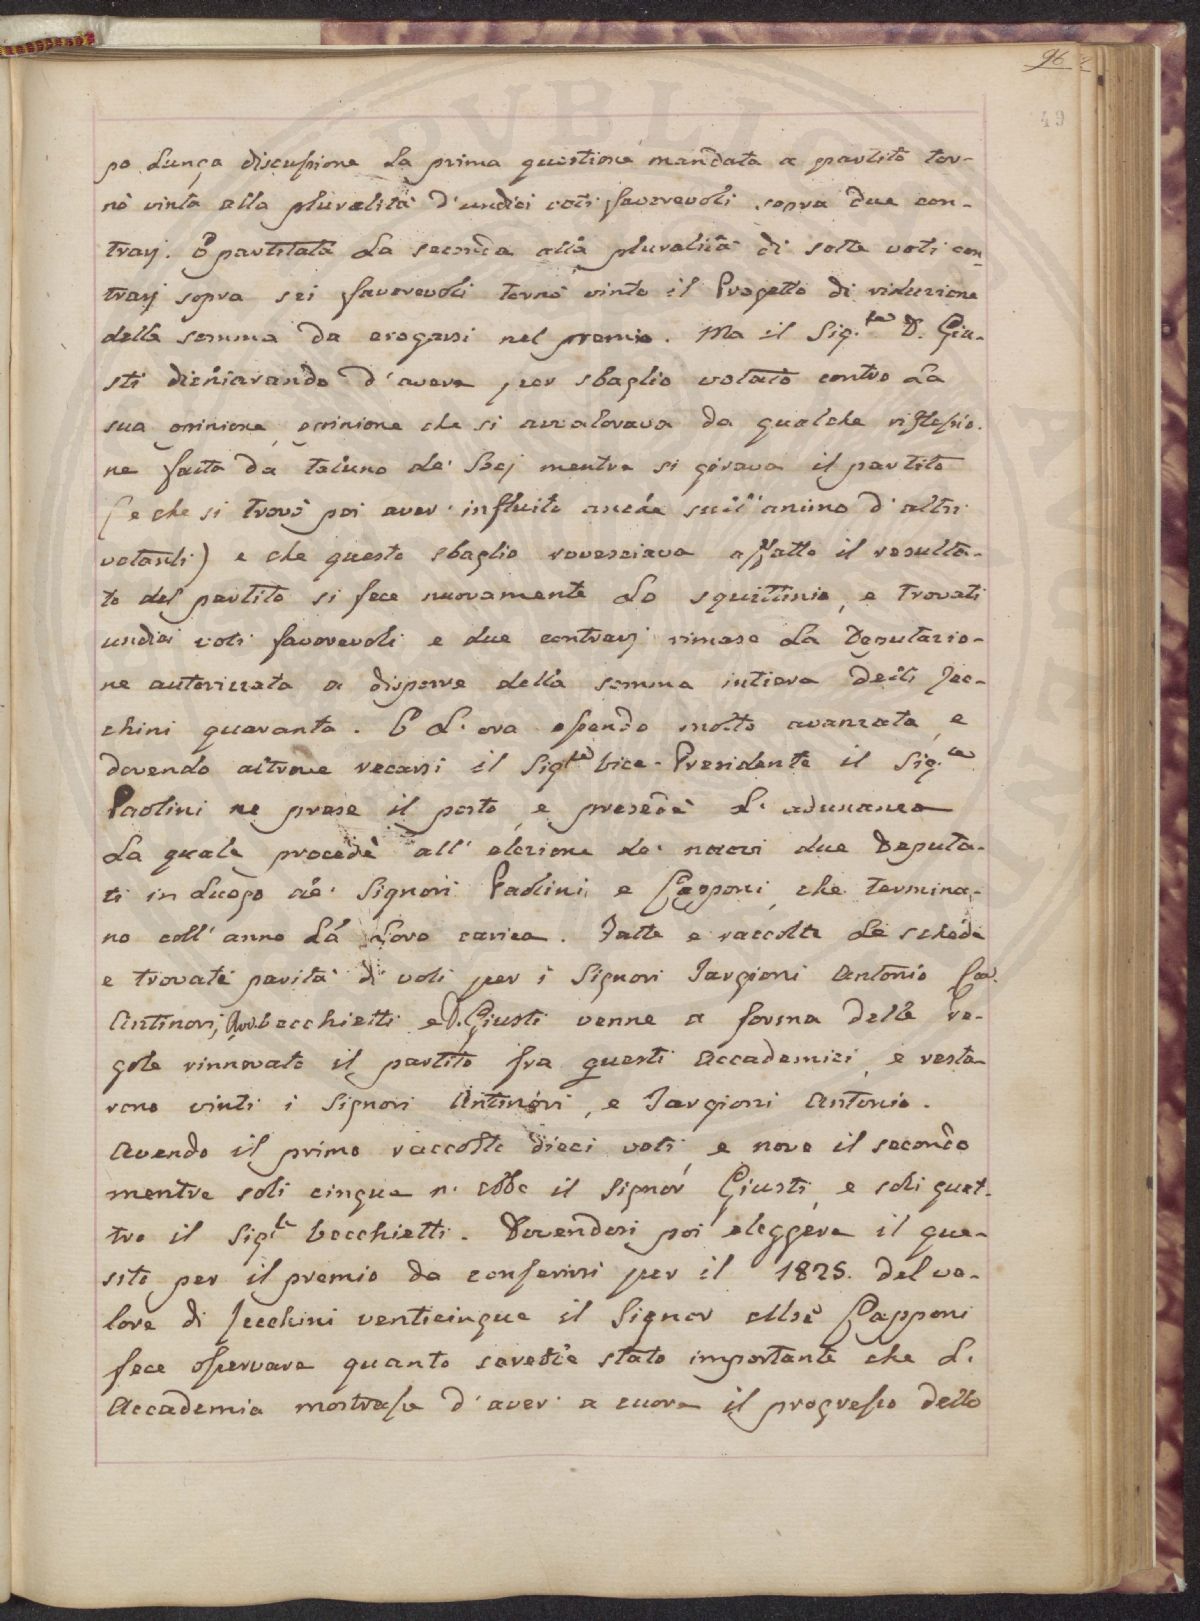 96
49
po lunga discussione la prima questione mandata a partito tor-
nò vinta alla pluralità d'undici voti favorevoli sopra due con-
trarj. E partitata la seconda alla pluralità di sette voti con-
trarj sopra sei favorevoli tornò vinto il Progetto di riduzione
della somma da erogarsi nel premio. Ma il Sig.re D. Giu-
sti dichiarando d'avere per sbaglio votato contro la
sua opinione, opinione che si avvalorava da qualche riflessio-
ne fatta da taluno de' Socj mentre si girava il partito
(e che si trovò poi aver influito anche sull'animo d'altri
votanti) e che questo sbaglio rovesciava affatto il resulta-
to del partito si fece nuovamente lo squittinio, e trovati
undici voti favorevoli e due contrarj rimase la Deputazio-
ne autorizzata a disporre della somma intiera delli Zec-
chini quaranta. E l'ora essendo molto avanzata, e
dovendo altrove recarsi il Sig.re Vice-Presidente il Sig.re
Paolini ne prese il posto, e presedè l'adunanza
la quale procedè all'elezione de' nuovi due Deputa-
ti in luogo de' Signori Paolini, e Capponi, che termina-
no coll'anno la loro carica. Fatte e raccolte le schede
e trovate parità di voti per i Signori Targioni Antonio Cav.
Antinori, Avv. Becchietti e D. Giusti venne a forma delle re-
gole rinnovato il partito fra questi Accademici, e resta-
rono vinti i Signori Antinori, e Targioni Antonio.
Avendo il primo raccolti dieci voti e nove il secondo
mentre soli cinque n'ebbe il Signor Giusti, e soli quat-
tro il Sig.re Becchietti. Dovendosi poi eleggere il que-
sito per il premio da conferirsi per il 1825. del va-
lore di Zecchini venticinque il Signor Capponi
fece osservare quanto sarebbe stato importante che l'
Accademia mostrasse d'aver a cuore il progresso dello